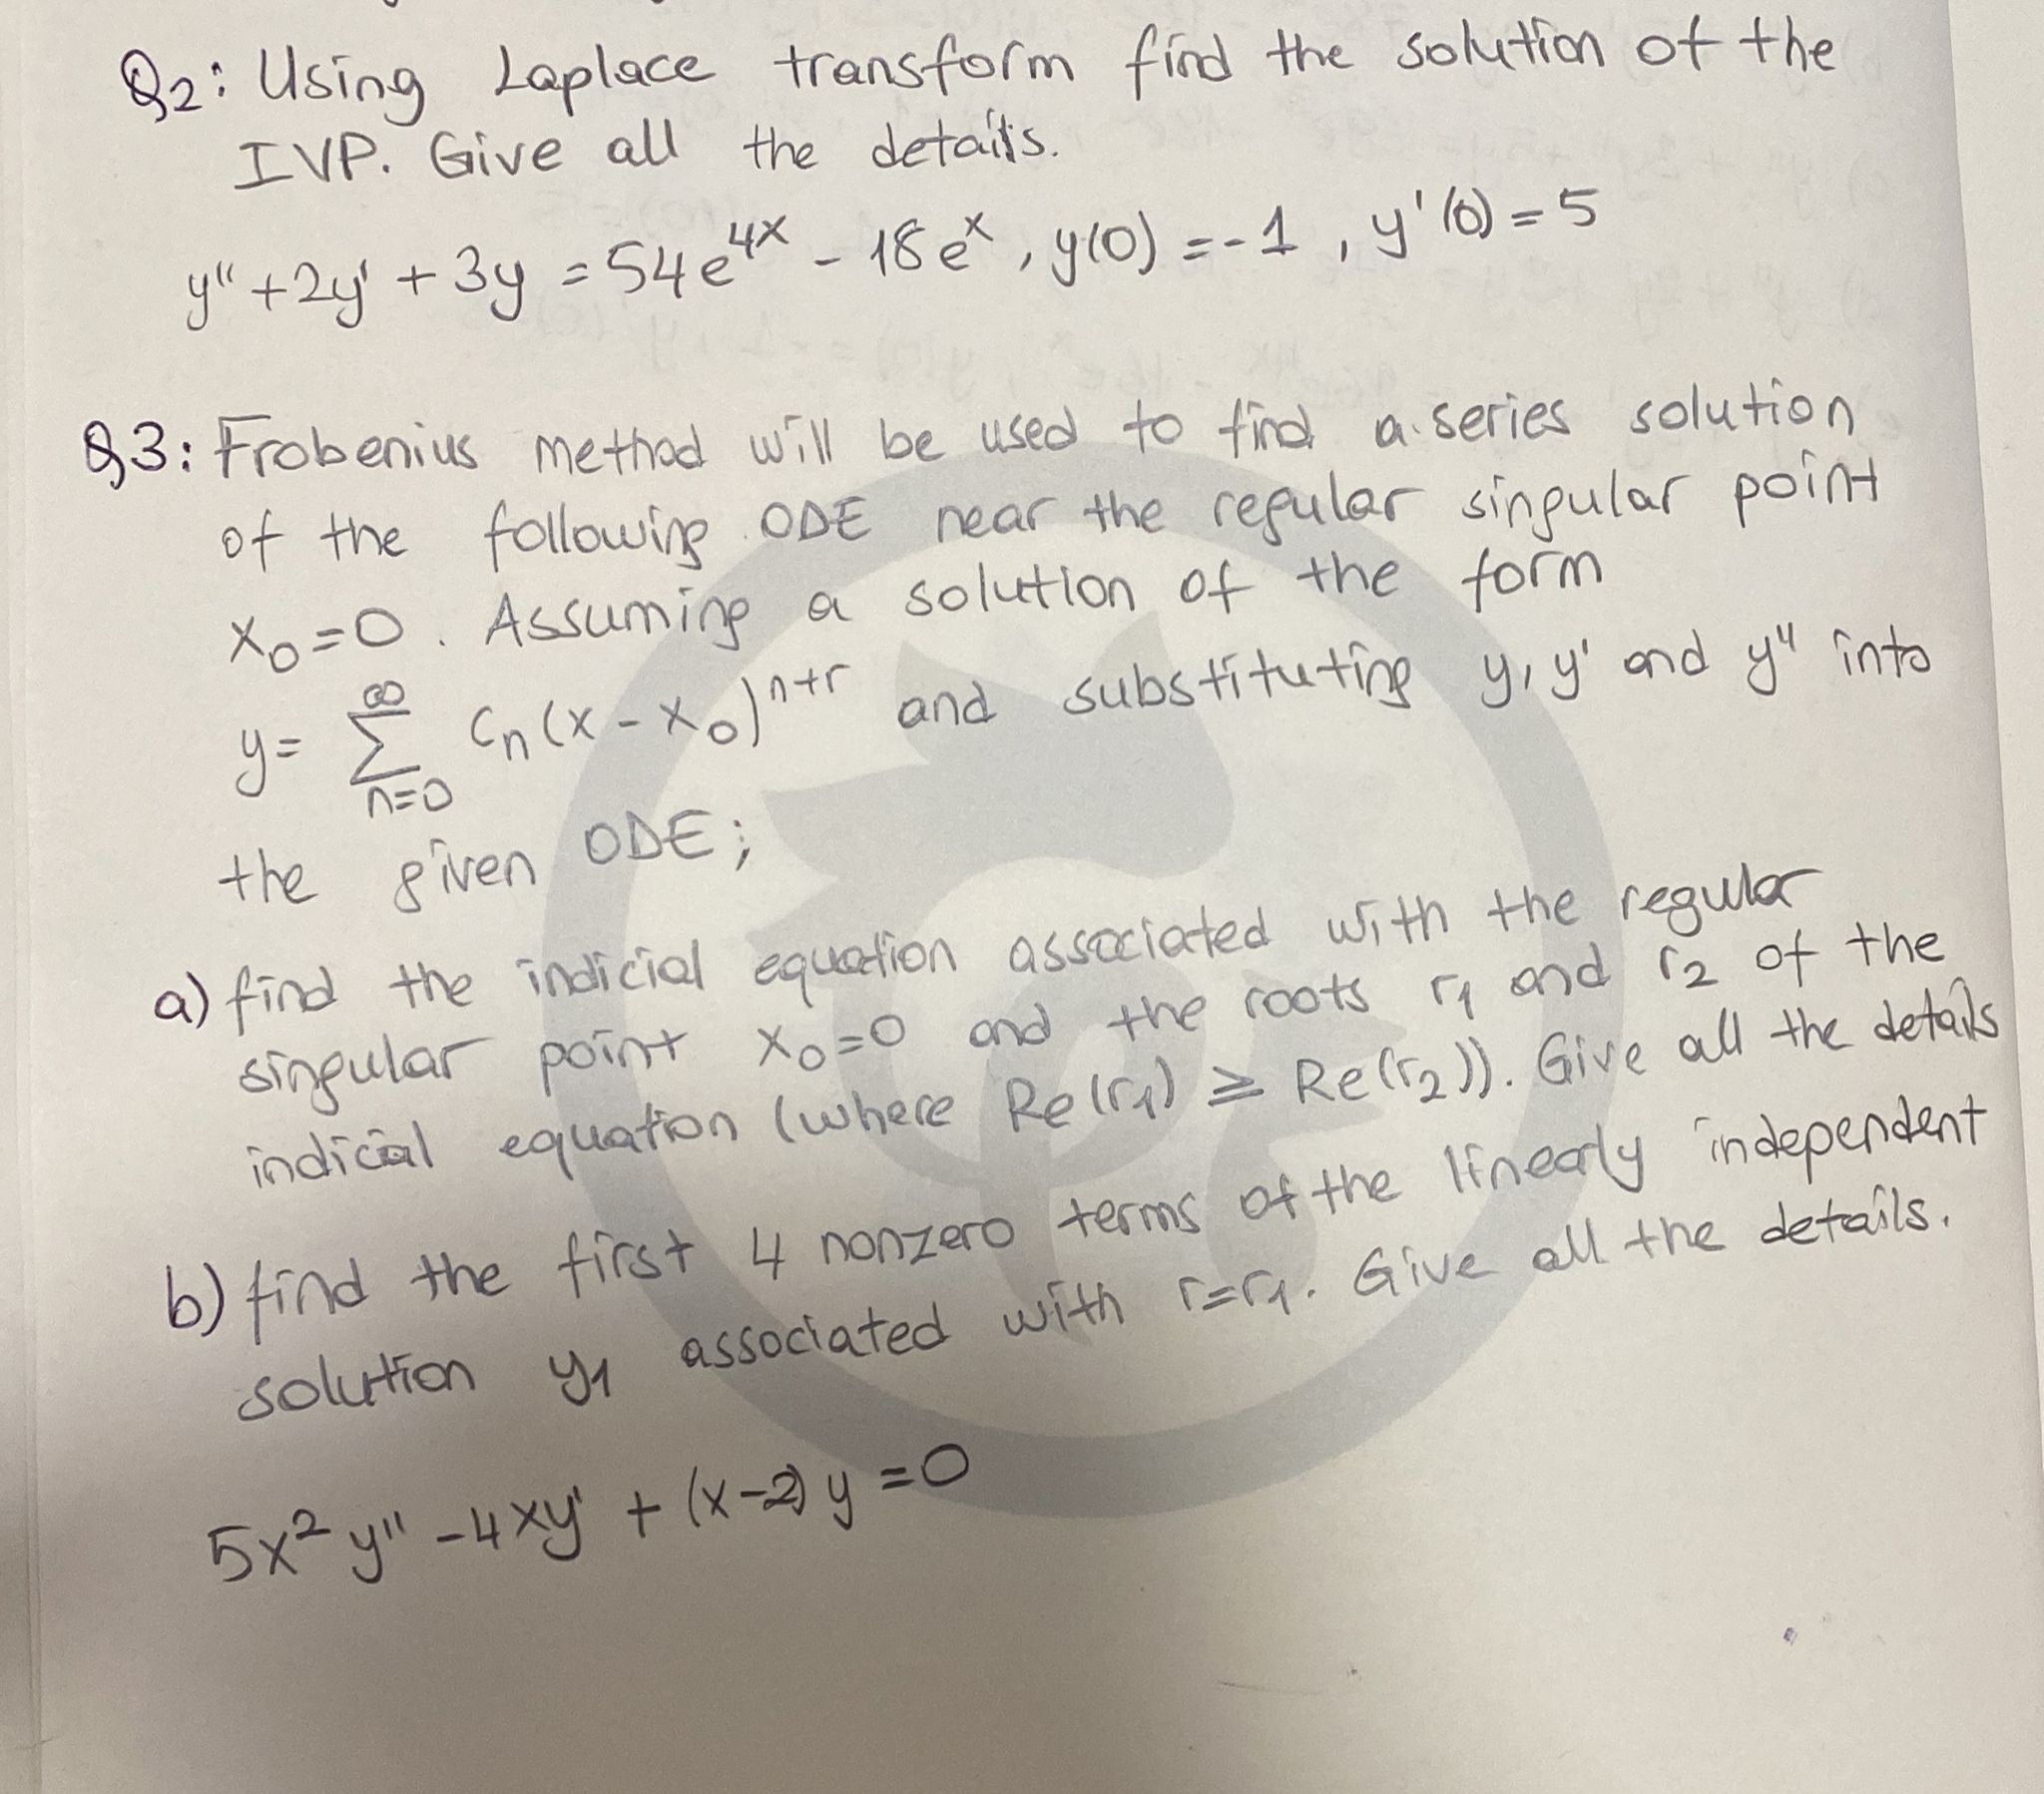 Q2: Using Laplace transform find the solution of the
IVP. Give all the details.
y'' + 2y' + 3y = 54e^{4x} - 18e^x, y(0) = -1, y'(0) = 5
Q3: Frobenius method will be used to find a series solution
of the following ODE near the regular singular point
x₀=0. Assuming a solution of the form
y = ∑_{n=0}^{∞} Cₙ(x-x₀)^{n+r} and substituting y, y' and y'' into
the given ODE;
a) find the indicial equation associated with the regular
singular point x₀=0 and the roots r₁ and r₂ of the
indicial equation (where Re(r₁) ≥ Re(r₂)). Give all the details
b) find the first 4 nonzero terms of the linearly independent
solution y₁ associated with r=r₁. Give all the details.
5x²y'' - 4xy' + (x-2)y = 0